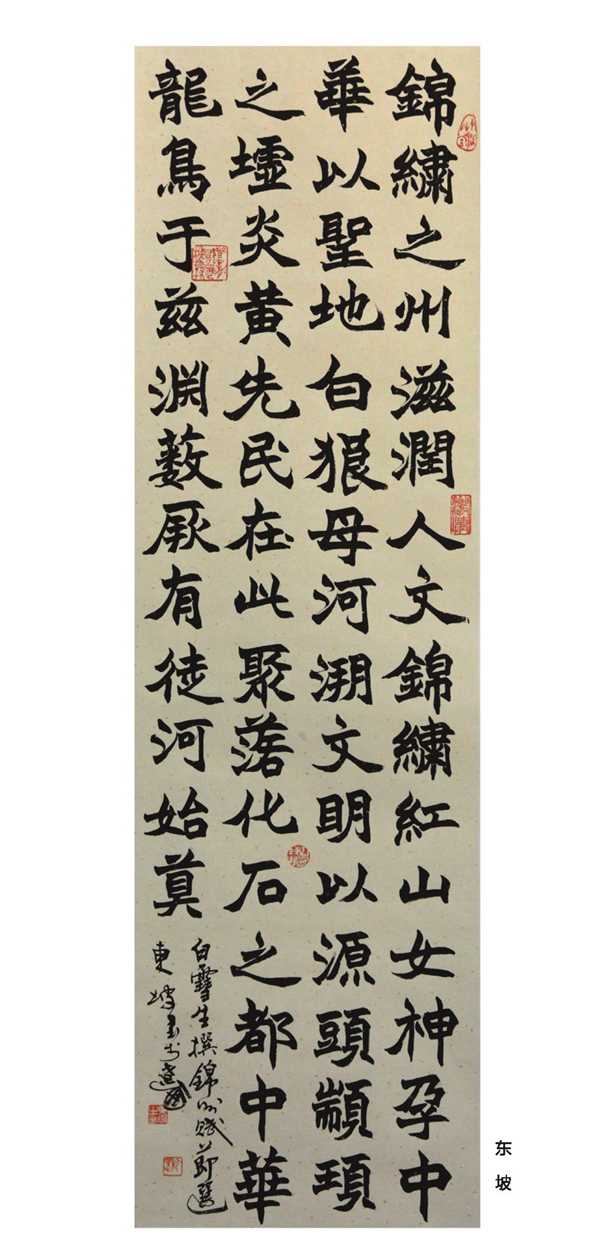 錦繡之州滋潤人文錦繡紅山女神孕中
華以聖地白狼母河溯文明以源頭顓頊
之墟炎黄先民在此聚落化石之都中華
龍鳥于兹淵藪厥有徒河始莫
白雪生撰錦州賦節選
東坡書於
东坡